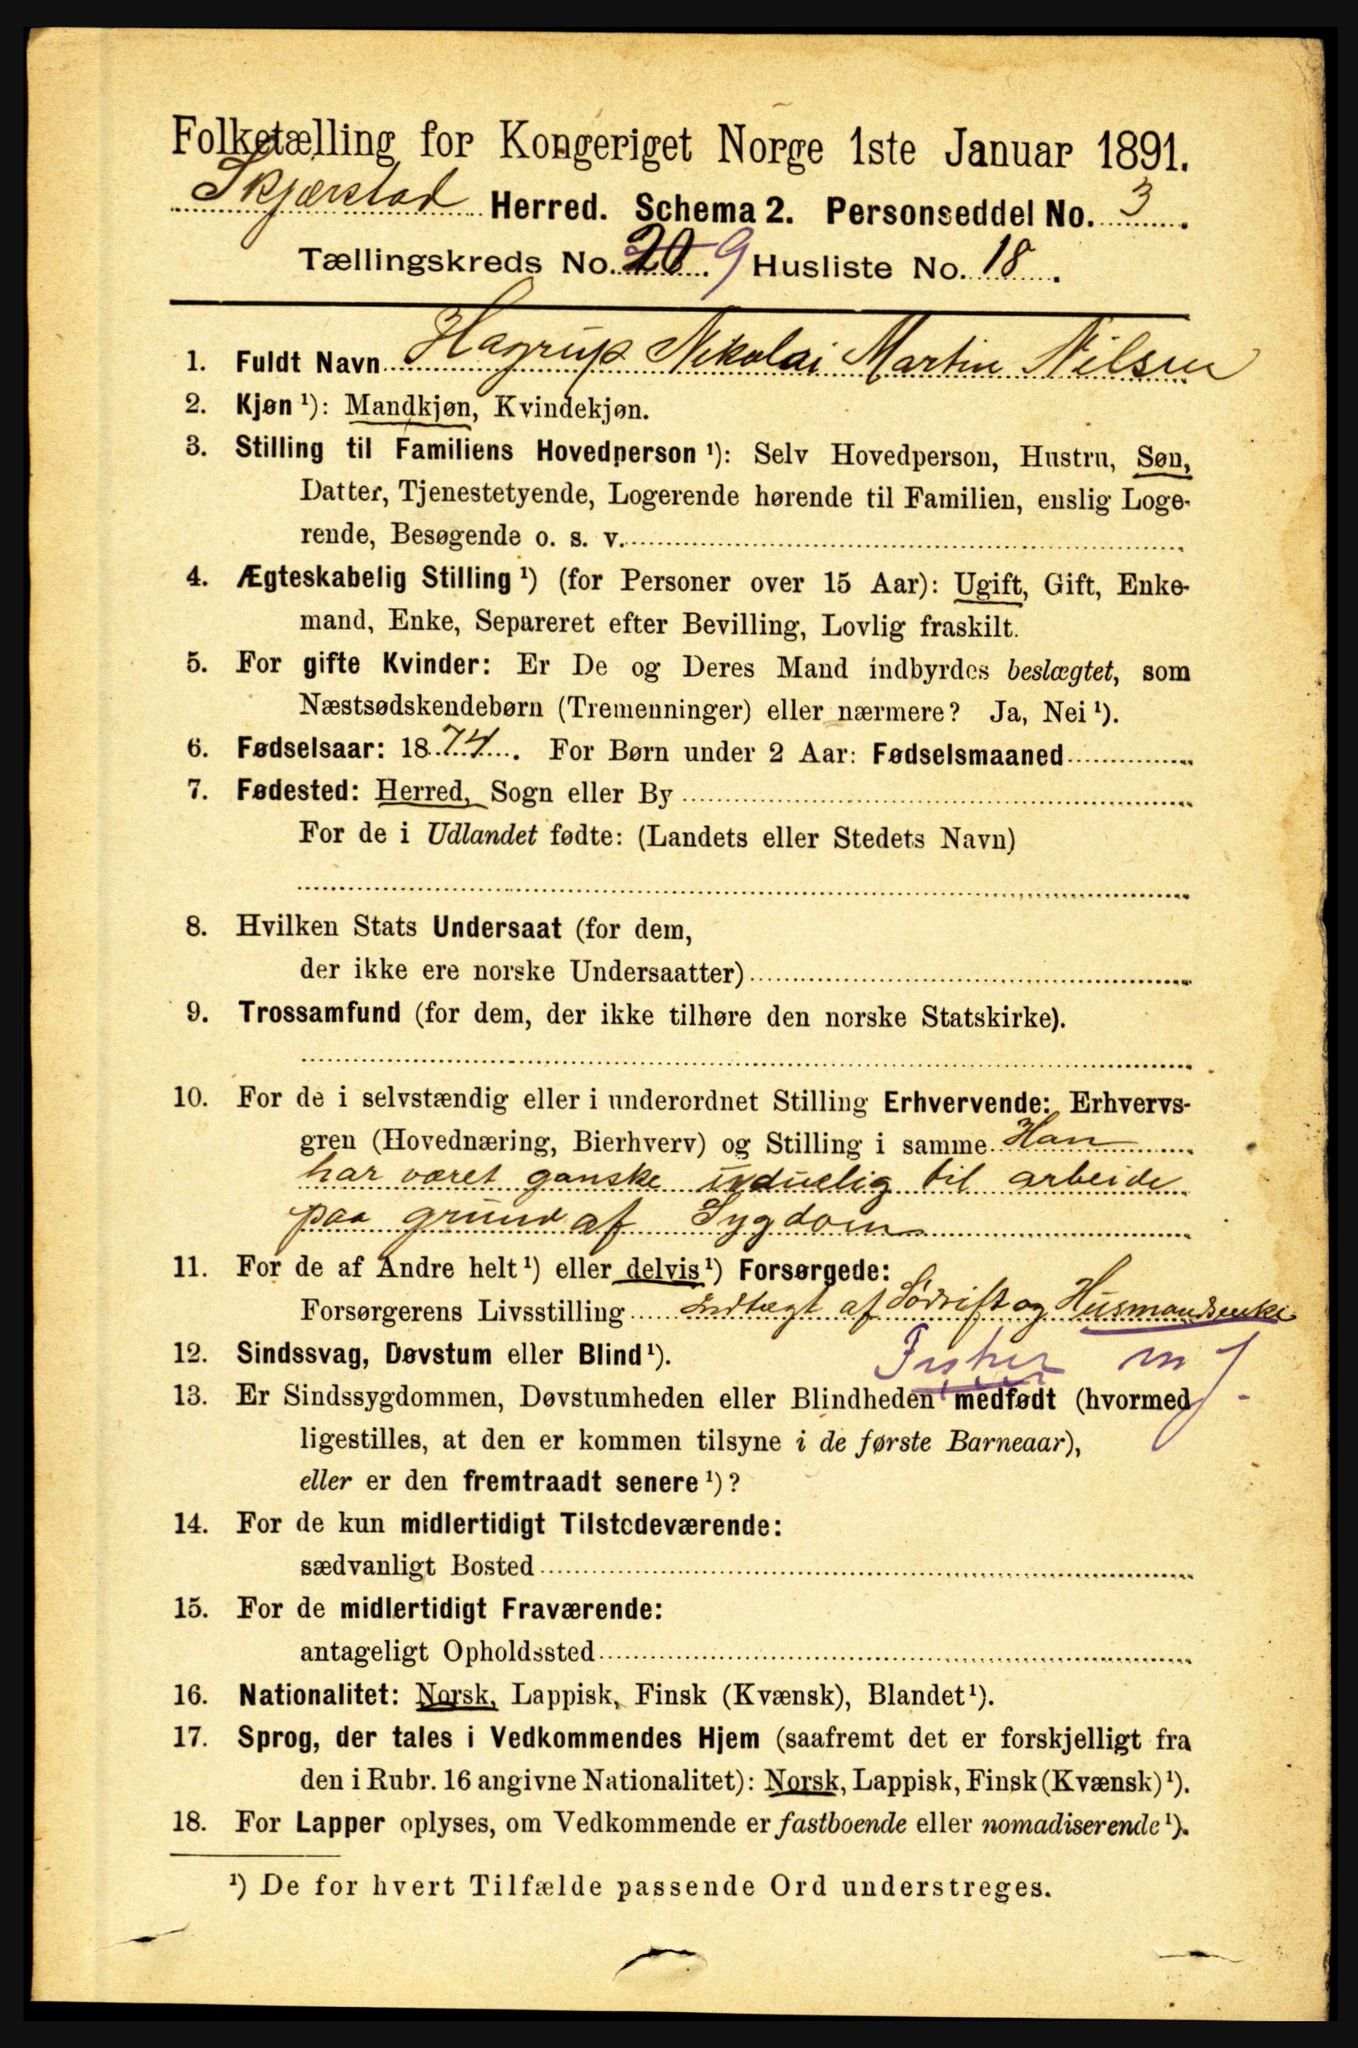 Folketælling for Kongeriget Norge 1ste Januar 1891.
Skjærstad Herred. Schema 2. Personseddel No. 3.
Tællingskreds No. 20. 9 Husliste No. 18.
1. Fuldt Navn Hagrup Nikolai Martin Nilsen
2. Kjøn ¹): Mandkjøn, Kvindekjøn.
3. Stilling til Familiens Hovedperson ¹): Selv Hovedperson, Hustru, Søn,
Datter, Tjenestetyende, Logerende hørende til Familien, enslig Loge-
rende, Besøgende o. s. v.
4. Ægteskabelig Stilling ¹) (for Personer over 15 Aar): Ugift, Gift, Enke-
mand, Enke, Separeret efter Bevilling, Lovlig fraskilt.
5. For gifte Kvinder: Er De og Deres Mand indbyrdes beslægtet, som
Næstsødskendebørn (Tremenninger) eller nærmere? Ja, Nei ¹).
6. Fødselsaar: 1874. For Børn under 2 Aar: Fødselsmaaned
7. Fødested: Herred, Sogn eller By
For de i Udlandet fødte: (Landets eller Stedets Navn)
8. Hvilken Stats Undersaat (for dem,
der ikke ere norske Undersaatter)
9. Trossamfund (for dem, der ikke tilhøre den norske Statskirke).
10. For de i selvstændig eller i underordnet Stilling Erhvervende: Erhvervs-
gren (Hovednæring, Bierhverv) og Stilling i samme Han
har været ganske uduelig til arbeide
paa grund af Sygdom
11. For de af Andre helt ¹) eller delvis ¹) Forsørgede:
Forsørgerens Livsstilling Indtægt af Jodrift og Husmandsenke
12. Sindssvag, Døvstum eller Blind ¹). Fisker m J
13. Er Sindssygdommen, Døvstumheden eller Blindheden medfødt (hvormed
ligestilles, at den er kommen tilsyne i de første Barneaar),
eller er den fremtraadt senere ¹)?
14. For de kun midlertidigt Tilstedeværende:
sædvanligt Bosted
15. For de midlertidigt Fraværende:
antageligt Opholdssted
16. Nationalitet: Norsk, Lappisk, Finsk (Kvænsk), Blandet ¹).
17. Sprog, der tales i Vedkommendes Hjem (saafremt det er forskjelligt fra
den i Rubr. 16 angivne Nationalitet): Norsk, Lappisk, Finsk (Kvænsk) ¹).
18. For Lapper oplyses, om Vedkommende er fastboende eller nomadiserende ¹).
¹) De for hvert Tilfælde passende Ord understreges.